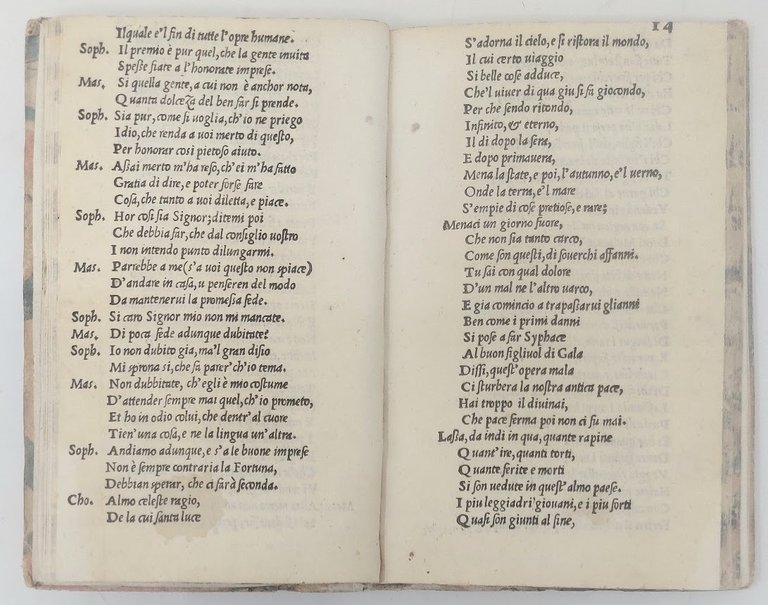 Ilquale e'l fin di tutte l'opre humane.
Soph. Il premio è pur quel, che la gente inuita
Speſſe fiate a l'honorate impreſe.
Mas. Si quella gente, a cui non è anchor nota,
Quanta dolceza del ben far ſi prende.
Soph. Sia pur, come ſi uoglia, ch'io ne priego
Idio, che renda a uoi merto di queſto,
Per honorar coſi pietoſo aiuto.
Mas. Aſſai merto m'ha reſo, ch'ei m'ha fatto
Gratia di dire, e poter forſe fare
Coſa, che tanto a uoi diletta, e piace.
Soph. Hor coſi ſia Signor; ditemi poi
Che debbia far, che dal conſiglio uoſtro
I non intendo punto dilungarmi.
Mas. Parrebbe a me (s'a uoi queſto non ſpiace)
D'andare in caſa, u penſeren del modo
Da mantenerui la promeſſa fede.
Soph. Si caro Signor mio non mi mancate.
Mas. Di poca fede adunque dubitate?
Soph. Io non dubito gia, ma'l gran diſio
Mi ſprona si, che fa parer ch'io tema.
Mas. Non dubbitate, ch'egli è mio coſtume
D'attender ſempre mai quel, ch'io prometo,
Et ho in odio colui, che dentr'al cuore
Tien'una coſa, e ne la lingua un'altra.
Soph. Andiamo adunque, e s'a le buone impreſe
Non è ſempre contraria la Fortuna,
Debbian ſperar, che ci ſarà ſeconda.
Cho. Almo celeſte ragio,
De la cui ſanta luce
14
S'adorna il cielo, e ſi riſtora il mondo,
Il cui certo uiaggio
Si belle coſe adduce,
Che'l uiuer di qua giu ſi fa giocondo,
Per che ſendo ritondo,
Infinito, & eterno,
Il di dopo la ſera,
E dopo primauera,
Mena la ſtate, e poi, l'autunno, e'l uerno,
Onde la terra, e'l mare
S'empie di coſe pretioſe, e rare;
Menaci un giorno fuore,
Che non ſia tanto carco,
Come ſon queſti, di ſouerchi affanni.
Tu ſai con qual dolore
D'un mal ne l'altro uarco,
E gia comincio a trapaſſarui glianni
Ben come i primi danni
Si poſe a far Syphace
Al buon figliuol di Gala
Diſſi, queſt'opera mala
Ci ſturbera la noſtra antica pace,
Hai troppo il diuinai,
Che pace ferma poi non ci fu mai.
Laſſa, da indi in qua, quante rapine
Quant'ire, quanti torti,
Quante ferite e morti
Si ſon uedute in queſt'almo paeſe.
I piu leggiadri giouani, e i piu forti
Quaſi ſon giunti al fine,